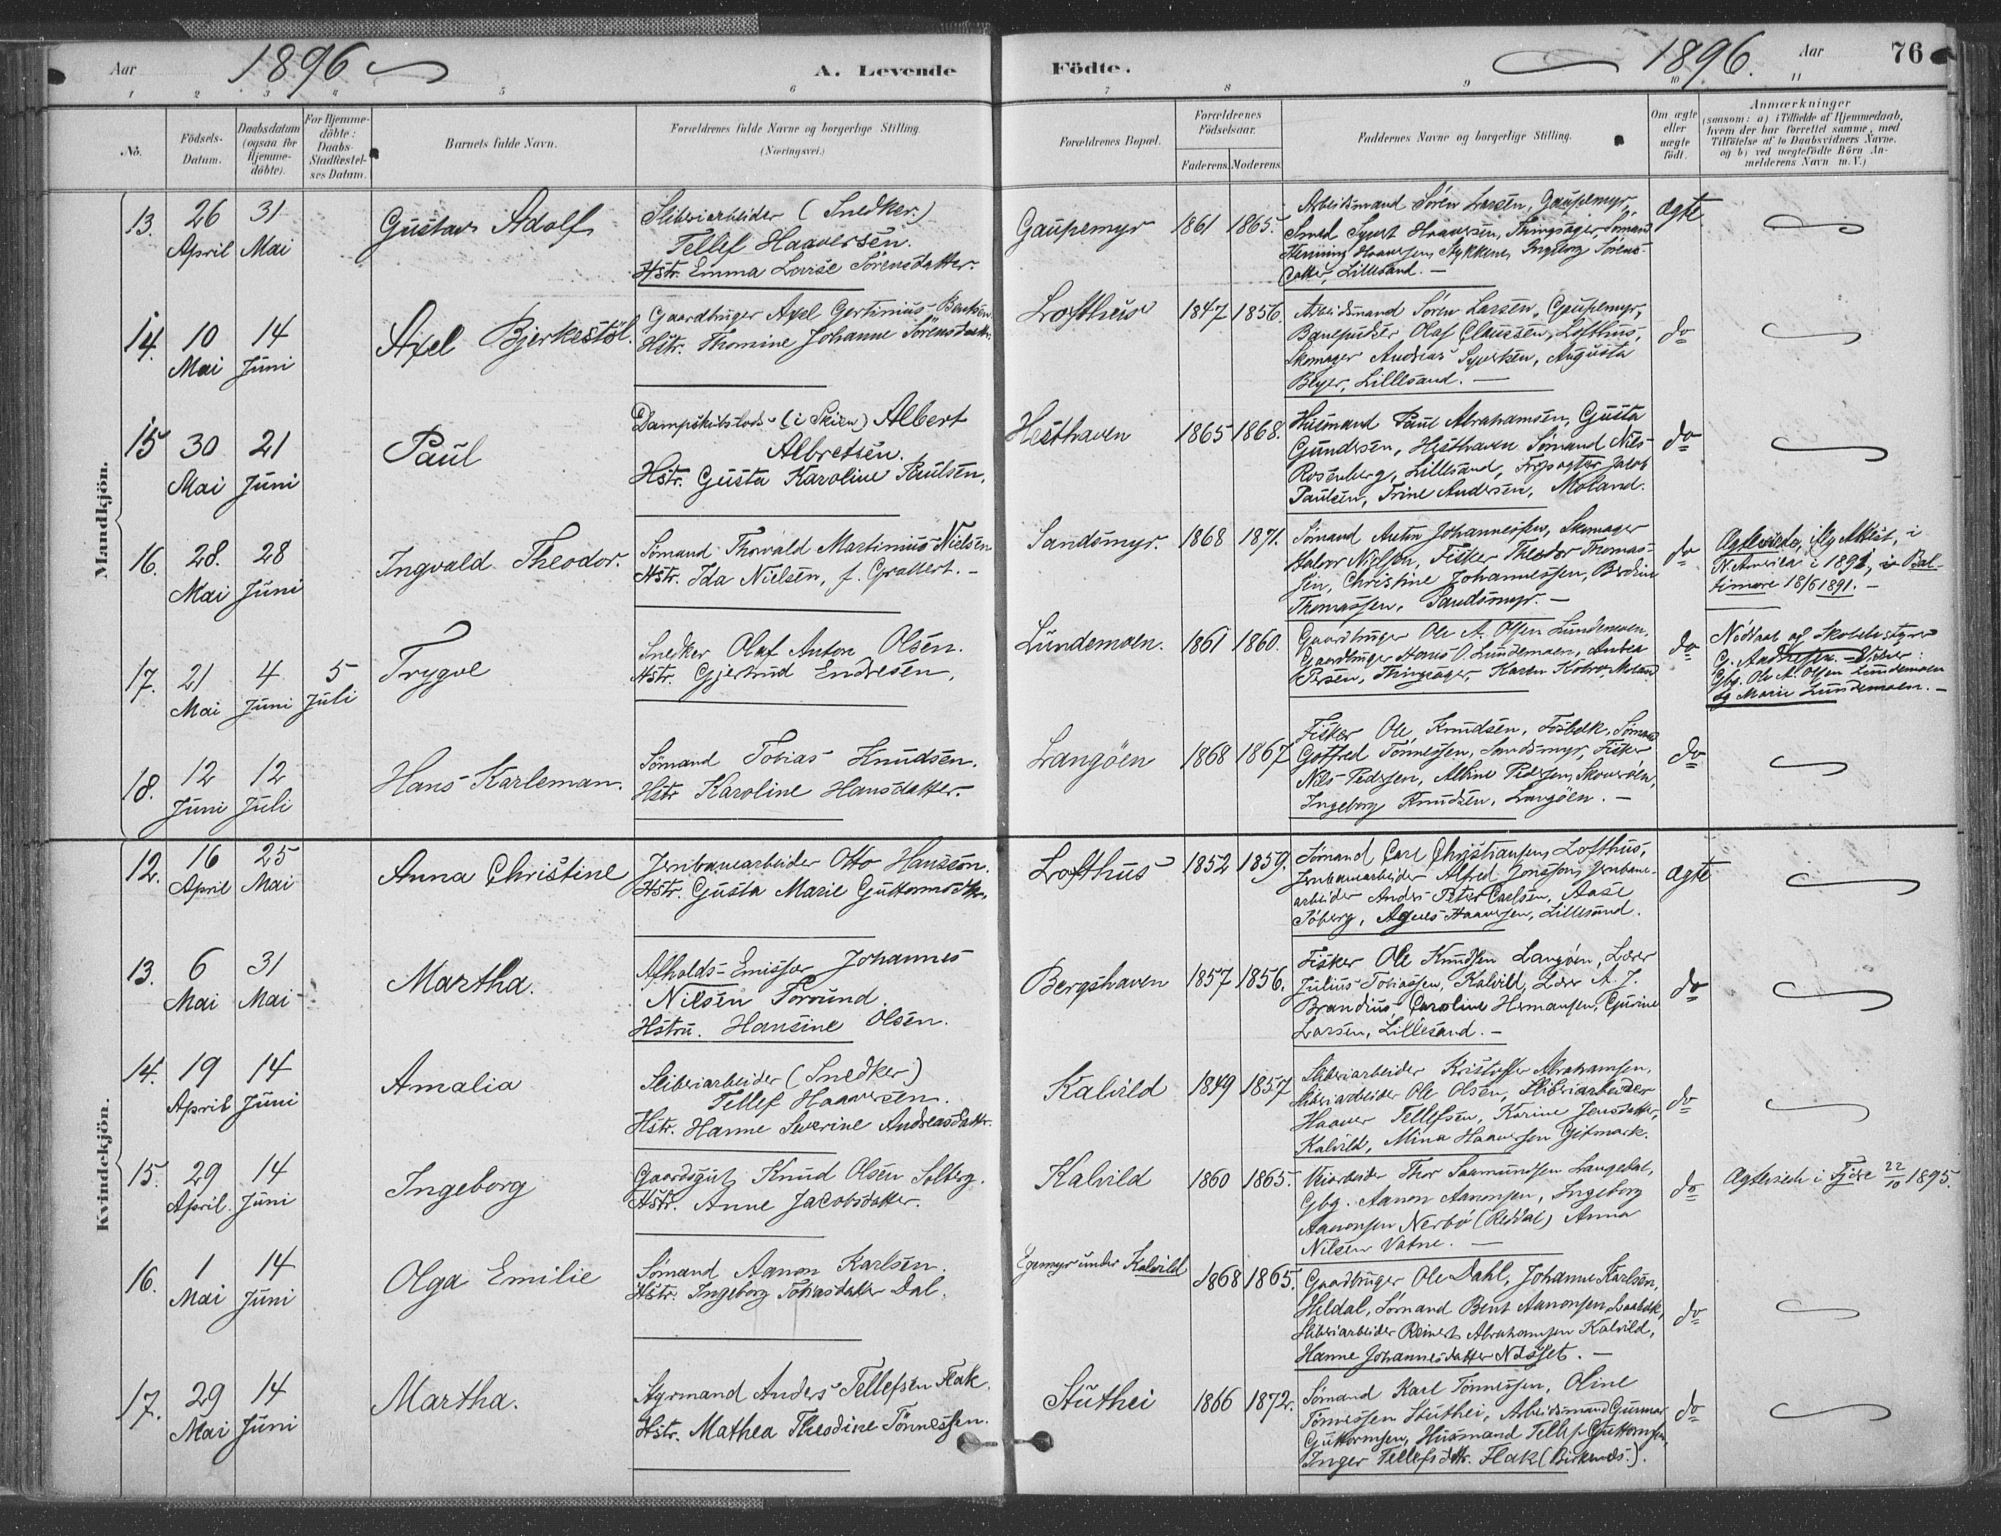 Aar 1896 A. Levende Födte. 1896. Aar 76
1 2 3 4 5 6 7 8 9 10 11
No.
Födsels-Datum.
Daabsdatum (ogsaa for Hjemme-döbte).
For Hjemme-döbte: Daabs-Stadfæstel-ses Datum.
Barnets fulde Navn.
Forældrenes fulde Navne og borgerlige Stilling. (Næringsvei.)
Forældrenes Bopæl.
Forældrenes Födselsaar.
Faderens. Moderens.
Faddernes Navne og borgerlige Stilling.
Om ægte eller uægte födt.
Anmærkninger
(saasom: a) i Tilfælde af Hjemmedaab, hvem der har forrettet samme, med Tilföielse af to Daabsvidners Navne. og b) ved uægtefödte Börn An-melderens Navn m. V.)
Mandkjön.
13. 26 April 31 Mai
Gustav Adolf
Sliberiarbeider (Snedker.)
Tellef Haaversen.
Hstr. Emma Lovise Sörensdatter.
Gaupemyr 1861 1865.
Arbeidsmand Sören Larsen, Gaupemyr,
Smed Syvert Haaversen, Thingsager Sömand
Henning Haaversen, Stykkene, Ingeborg Sörens-
datter, Lillesand. —
Ægte
14. 10 Mai 14 Juni
Axel Bjerkestöl.
Gaardbruger Axel Gertinius Bentsen
Hstr. Thomine Johanne Sörensdatter.
Lofthus 1847 1856.
Arbeidsmand Sören Larsen, Gaupemyr,
Banepudser Olaf Claussen, Lofthus,
Skomager Andreas Syvertsen, Augusta
Beyer, Lillesand. —
do
15 30 Mai 21 Juni
Paul
Dampskibslods (i Skien) Albert
Albretsen.
Hstr. Gusta Karoline Paulsen,
Hesthaven 1865 1868.
Husmand Paul Abrahamsen, Gusta
Gundersen, Hesthaven Sömand Nils
Rosenberg, Lillesand, Jacob
Paulsen, Trine Andersen, Moland.
do
16. 28. Mai 28 Juni
Ingvald Theodor.
Sömand Thorvald Martinius Nielsen
Hstr. Ida Nielsen, f. Grallert. —
Sandsmyr. 1868 1871.
Sömand Anton Johannessen, Skomager
Halvor Nielsen, Fisker Theodor Thomas-
sen, Christine Johannessen, Berdine
Thomassen, Sandsmyr. —
do
Ægteviede, ifg Attest, i
N. Amerika i 1891, i Bal-
timore 18/6 1891. —
17. 21 Mai 4 Juni 5 Juli
Trygve
Snedker Olaf Anton Olsen.
Hstr. Gjertrud Endresen,
Lundemoen. 1861 1860.
Gaardbruger Ole A. Olsen Lundemoen,
Gaardbruger Hans O. Lundemoen, Andrea
Persen, Thingsager, Karen Moland
do
Nöddaab af Skolebestyrer
G. Andresen. — Vidner:
Gbg. Ole A. Olsen Lundemoen
og Marie Lundemoen. —
18. 12 Juni 12 Juli
Hans Karleman.
Sömand Tobias Knudsen.
Hstr. Karoline Hansdatter.
Langöen 1868 1867
Fisker Ole Knudsen, Fosbæk, Sömand
Gotfred Tönnessen, Sandsmyr, Fisker
Nils Pedersen, Albine Pedersen, Skouröen,
Ingeborg Knudsen, Langöen. —
do
Kvindekjön.
12. 16 April 25 Mai
Anna Christine
Jernbanearbeider Otto Hansson.
Hstr. Gusta Marie Guttormsdtr.
Lofthus 1852 1859.
Sömand Carl Christiansen, Lofthus,
Jernbanearbeider Alfred Jonsson, Jernbane-
arbeider Anders Peter Carlsen, Aase
Söberg, Agnes Haaversen, Lillesand.
Ægte
13. 6 Mai 31 Mai
Martha.
Afholds-Emissær Johannes
Nilsen Forsund.
Hstru. Hansine Olsen.
Bergshaven 1857 1856.
Fisker Ole Knudsen Langöen, Lærer
Julius Tobiassen, Kalvild, Lærer A. J.
Brandius, Caroline Hermansen, Gurine
Larsen, Lillesand. —
do
14. 19 April 14 Juni
Amalia
Sliberiarbeider (Snedker)
Tellef Haaversen.
Hstr. Hanne Severine Andreasdatter.
Kalvild 1849 1857
Sliberiarbeider Kristoffer Abrahamsen,
Sliberiarbeider Ole Olsen, Sliberiarbeider
Haaver Tellefsen, Karine Jensdatter,
Kalvild, Mina Haaversen Gitmark.
do
15. 29 April. 14 Juni
Ingeborg
Gaardsgut Knud Olsen Solberg.
Hstr. Anne Jacobsdatter.
Kalvild 1860 1865.
Thor Saamundsen Langedal,
Gbg. Aanon Aanonsen, Ingeborg
Aanonsen Nerbö (Reddal) Anna
Nilsen Vatne. —
do
Ægteviede i Fjære 22/10 1895.
16. 1 Mai 14 Juni
Olga Emilie
Sömand Aanon Karlsen.
Hstr. Ingeborg Tobiasdatter Dal.
under Kalvild 1868 1865.
Gaardbruger Ole Dahl, Johanne Karlsen,
Heldal, Sömand Bent Aanonsen,
Sliberiarbeider Reinert Abrahamsen Kalvild,
Hanne Johannesdatter Nesset. —
do
17. 29 Mai 14 Juni
Martha.
Styrmand Anders Tellefsen Flak.
Hstr. Mathea Theodine Tönnessen.
Stuthei 1866 1872.
Sömand Karl Tönnessen, Oline
Tönnessen Stuthei, Arbeidsmand Gunnar
Guttormsen, Husmand Tellef Guttormsen,
Inger Tellefsdtr. Flak (Birkenæs.).
do